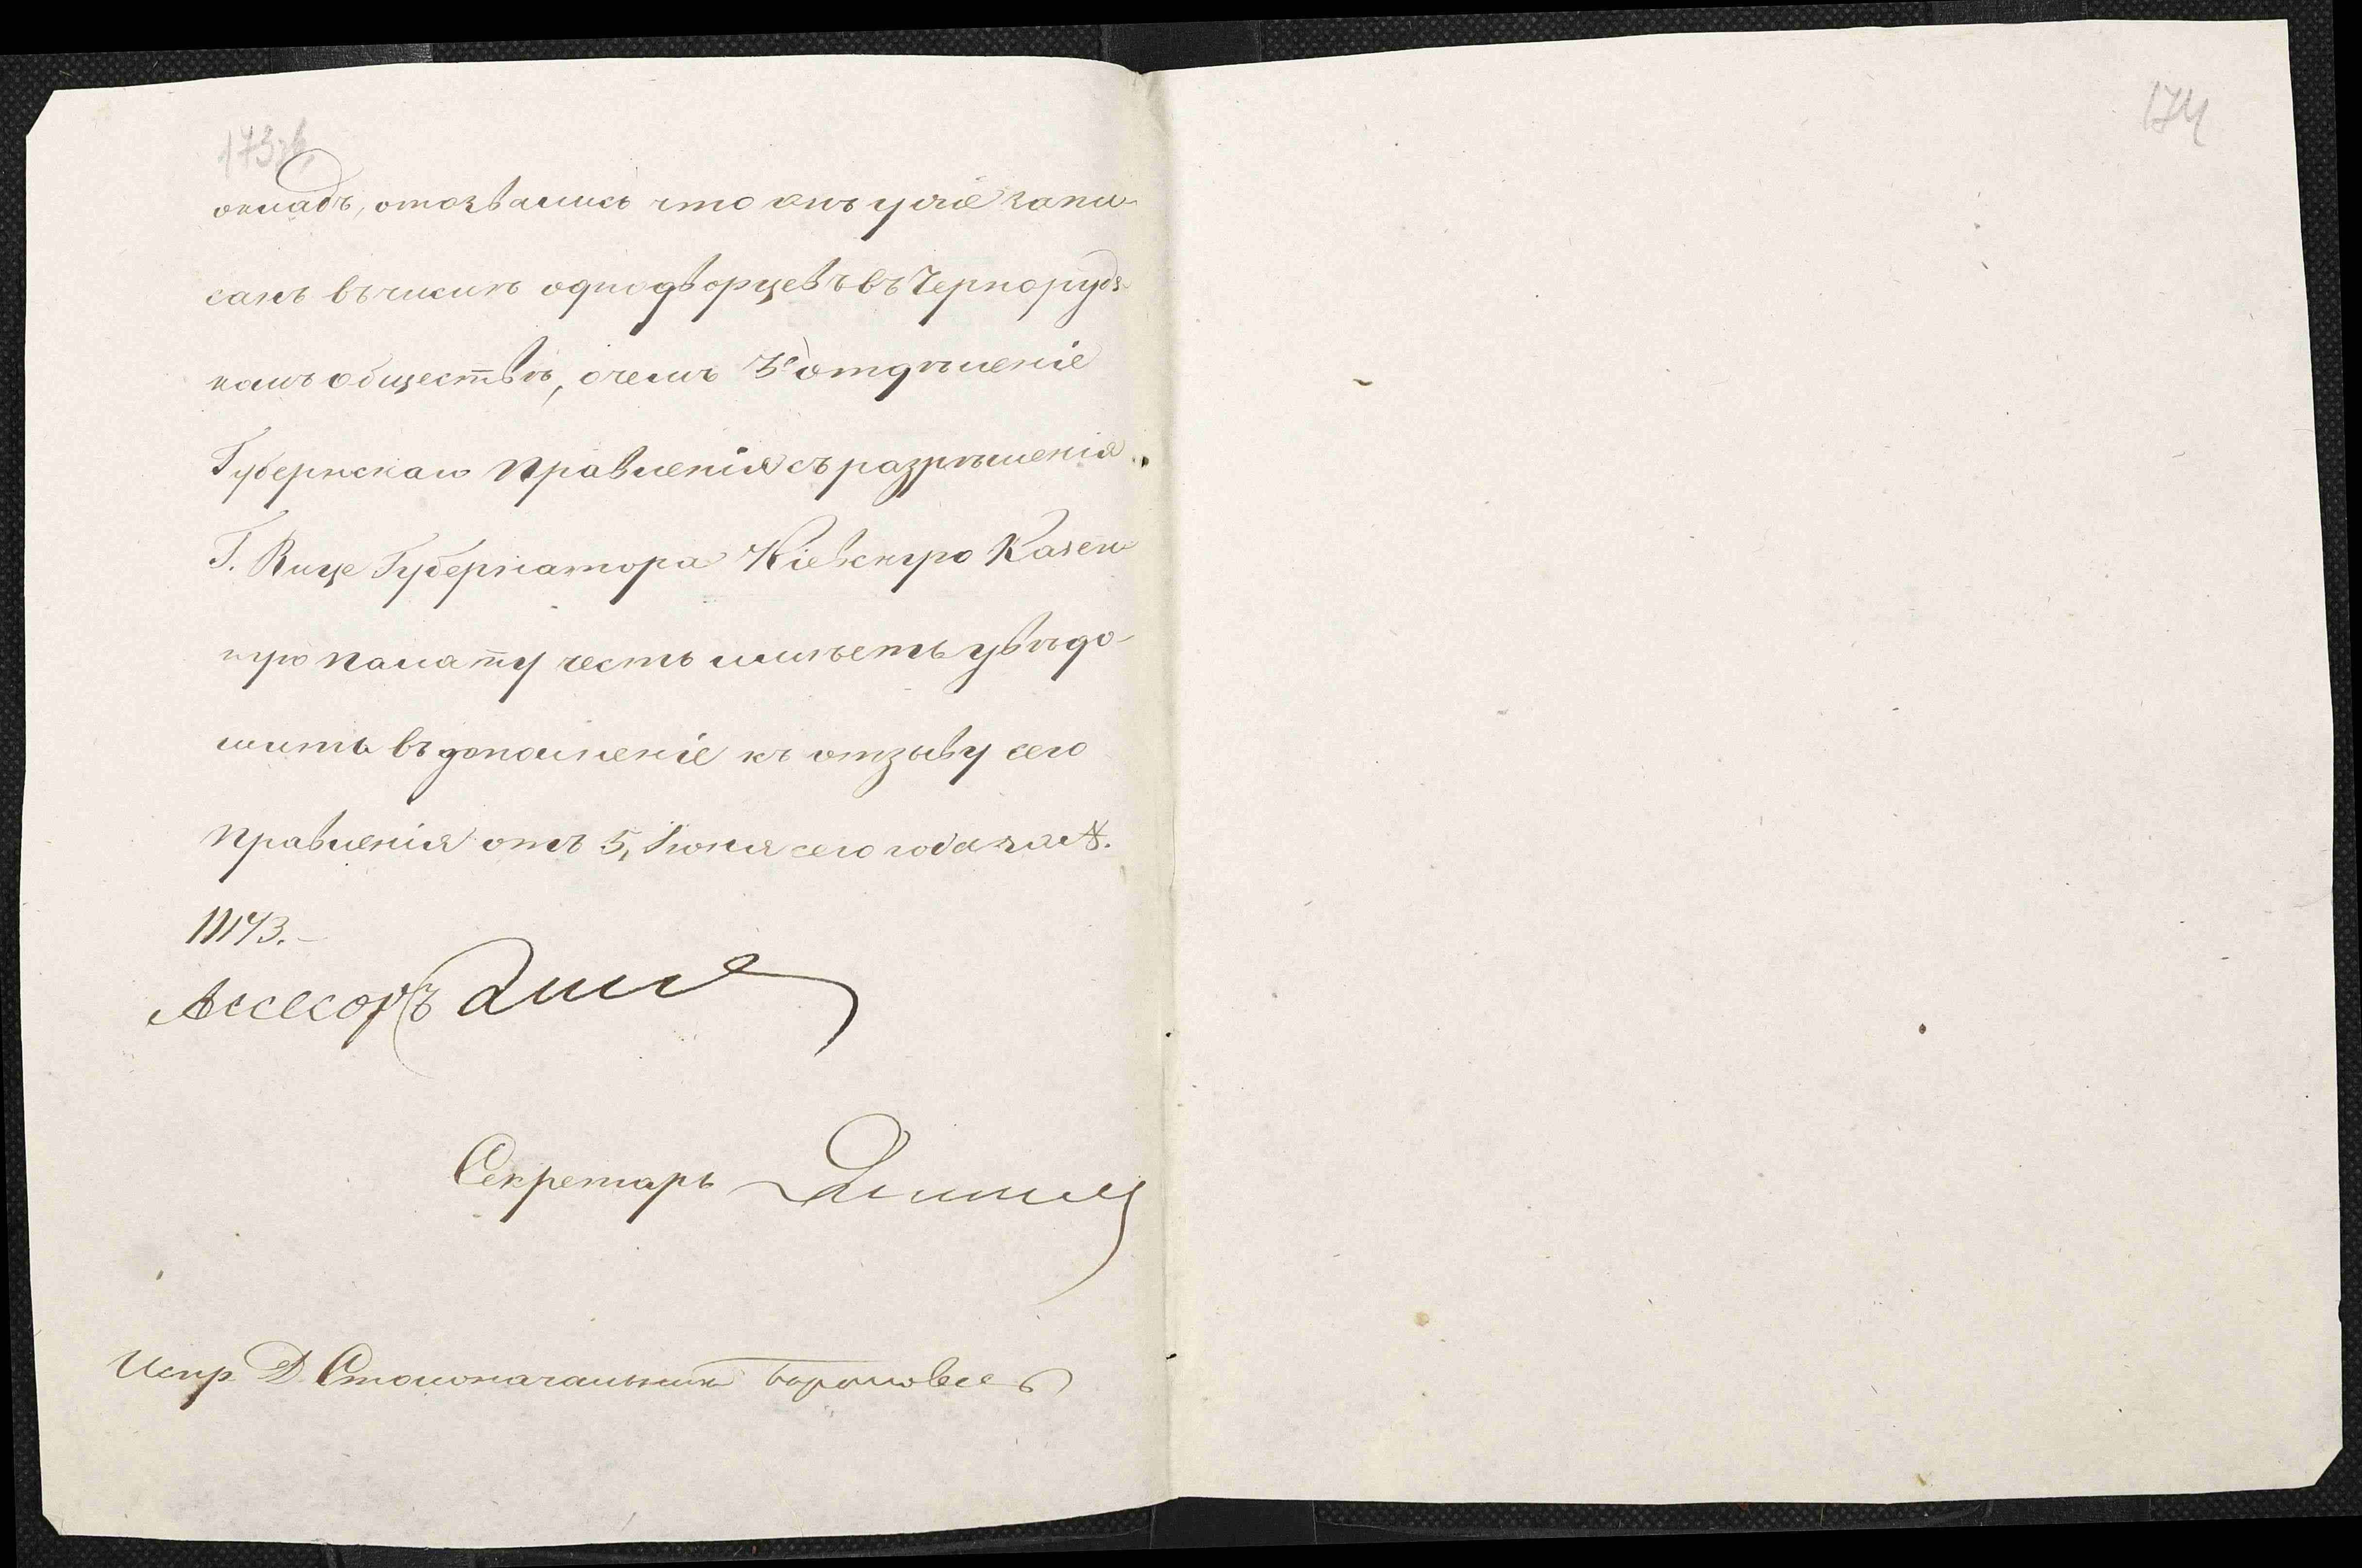 173об.
174
окладъ, отозвались что онъ уже запи-
санъ въ числѣ однодворцевъ въ Чернорудс-
комъ обществѣ, очемъ 3е отдѣленіе
Губернскаго Правленія съ разрѣшенія
Г. Вице Губернатора Кіевскую Казен-
ную Палату честь имѣетъ увѣдо-
мить въ дополненіе къ отзыву сего
Правленія отъ 5, Іюня сего года за №.
11143.-
Ассесоръ
Секретарь
Испр. Д. Столоначальника